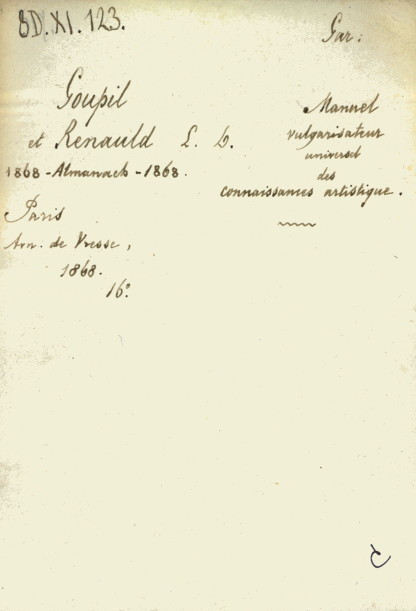 8D.XI.123.
Gar:
Goupil
et Renauld L. D.
1868-Almanach-1868.
Paris
Arn. de Vresse,
1868.
16º
Manuel
vulgarisateur
universel
des
connaissances artistique.